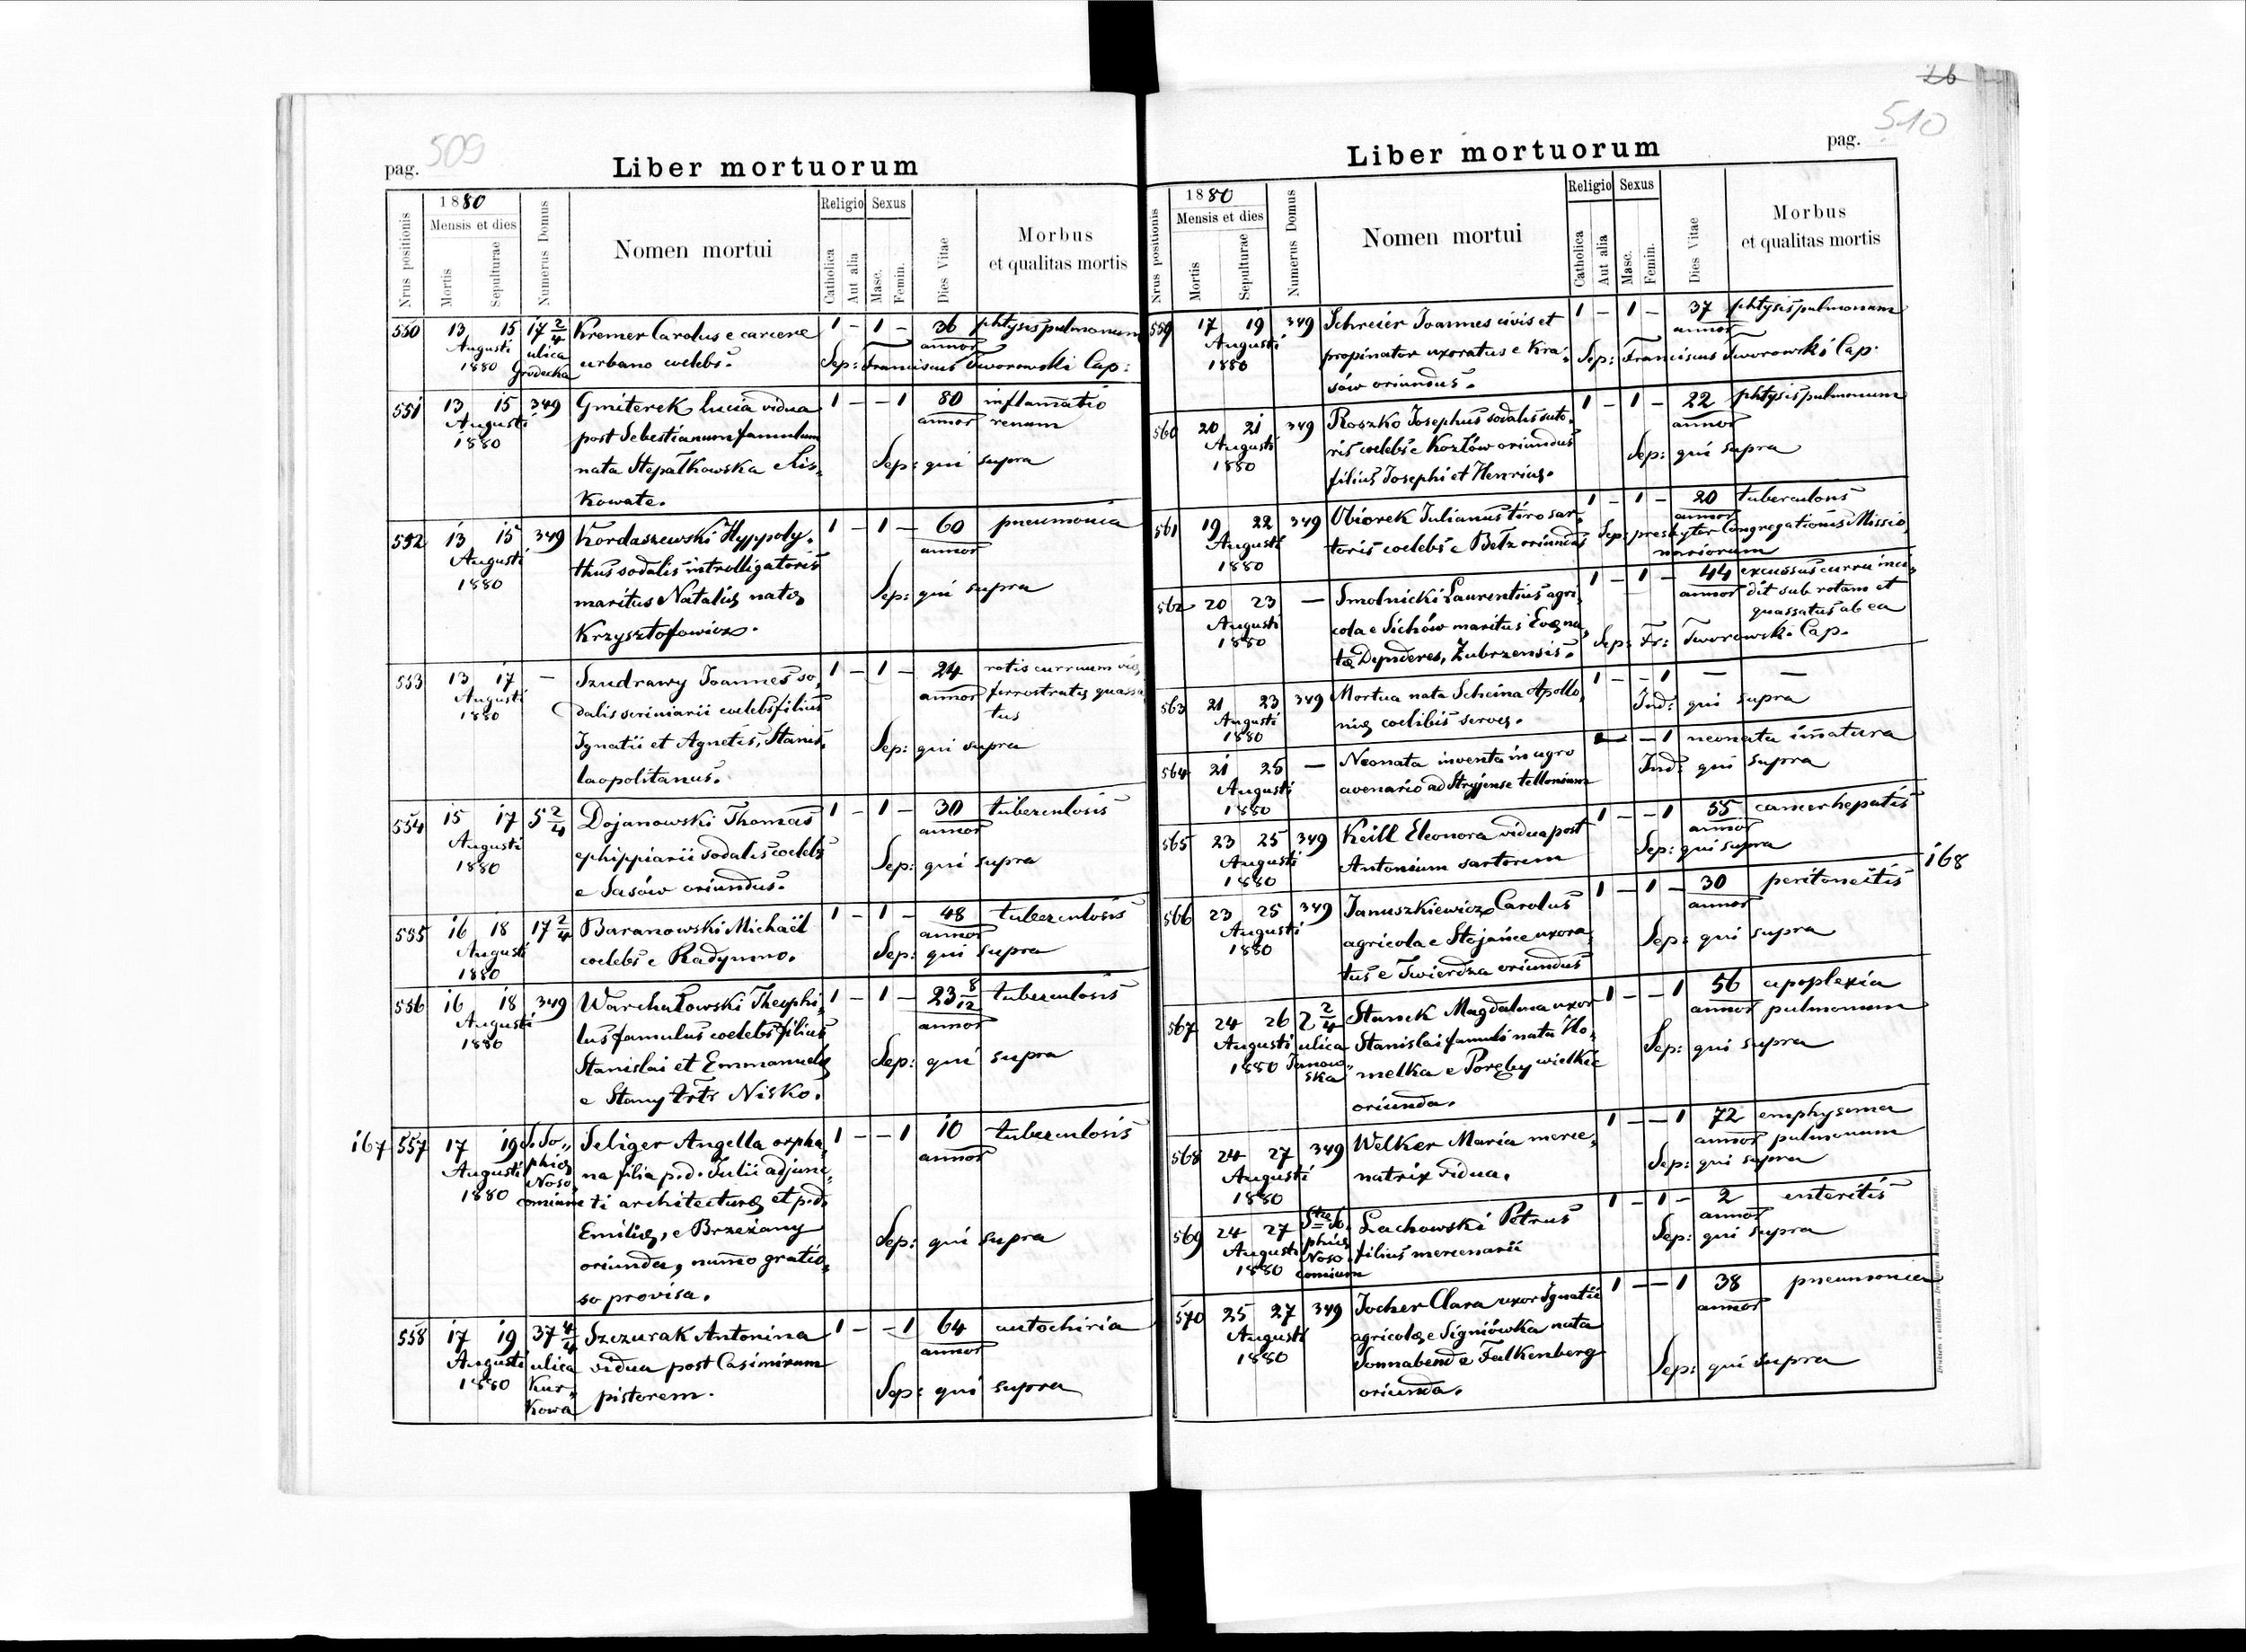 509
pag.
Liber mortuorum
1880
Mensis et dies
Religio Sexus
Nrus positionis
Mortis
Sepulturae
Numerus Domus
Nomen mortui
Catholica
Aut alia
Masc.
Femin.
Dies Vitae
Morbus
et qualitas mortis
550 13 15 17 2/4 Kremer Carolus e carcere 1 - 1 - 36 phtysis pulmonum
Augusti ulica urbano coelebs. annor
1880 Grodecka Sep: Franciscus Tworowski Cap:
551 13 15 349 Gmiterek Lucia vidua 1 - - 1 80 inflamatio
Augusti post Sebestianum famulum annor renum
1880 nata Stepałkowska e Lis, Sep: qui supra
kowate.
552 13 15 349 Kordaszewski Hyppoly, 1 - 1 - 60 pneumonia
Augusti thus sodalis introlligatoris annor
1880 maritus Nataliæ natæ Sep: qui supra
Krzysztofowicz.
553 13 17 - Szudrawy Joannes so, 1 - 1 - 24 rotis curruum viæ
Augusti dalis scriniarii coelebs filius annor ferrostratæ quassa
1880 Ignatii et Agnetis, Stanis, tus
laopolitanus. Sep: qui supra
554 15 17 5 2/4 Dojanowski Thomas 1 - 1 - 30 tuberculosis
Augusti ephippiarii sodalis coelebs annor
1880 e Sasów oriundus. Sep: qui supra
555 16 18 17 2/4 Baranowski Michaël 1 - 1 - 48 tuberculosis
Augusti coelebs e Radymno. annor
1880 Sep: qui supra
556 16 18 349 Warchałowski Theophi, 1 - 1 - 23 8/12 tuberculosis
Augusti lus famulus coelebs filius annor
1880 Stanislai et Emmanuelæ Sep: qui supra
e Stany Nisko.
167 557 17 19 S. So,, Seliger Angella orpha, 1 - - 1 10 tuberculosis
Augusti phiæ na filia p.d. Julii adjunc, annor
1880 Noso
comium ti architecturæ et p.d.
Emiliæ, e Brzeżany Sep: qui supra
oriunda, numo gratio,
so provisa.
558 17 19 37 4/4 Szczurak Antonina 1 - - 1 64 autochiria
Augusti ulica vidua post Casimirum annor
1880 Kur, pistorem. Sep: qui supra
kowa
26
510
Liber mortuorum
pag.
1880
Mensis et dies
Religio Sexus
Nrus positionis
Mortis
Sepulturae
Numerus Domus
Nomen mortui
Catholica
Aut alia
Masc.
Femin.
Dies Vitae
Morbus
et qualitas mortis
559 17 19 349 Schreier Joannes civis et 1 - 1 - 37 phtysis pulmonum
Augusti propinator uxoratus e Kra, annor
1880 sów oriundus. Sep: Franciscus Tworowski Cap.
560 20 21 349 Roszko Josephus sodalis suto, 1 - 1 - 22 phtysis pulmonum
Augusti ris coelebs e Kozłów oriundus annor
1880 filius Josephi et Henricæ. Sep: qui supra
561 19 22 349 Obiorek Julianus tiro sar, 1 - 1 - 20 tuberculosis
Augusti toris coelebs e Bełz oriundus annor
1880 Sep: presbyter Congregationis Missio,
nariorum
562 20 23 - Smolnicki Laurentius agri, 1 - 1 - 44 excussus curru inci,
Augusti cola e Sichów maritus Evæ na, annor dit sub rotam et
1880 tæ Dynderes, Zubrzensis. quassatus ab ea
Sep: Fr: Tworowski Cap.
563 21 23 349 Mortua nata Scheina Apollo, 1 - - 1 - -
Augusti niæ coelibis servæ. Ind: qui supra
1880
564 21 25 - Neonata inventa in agro - - 1 neonata imatura
Augusti avenario ad Stryjense telloneum Ind: qui supra
1880
565 23 25 349 Keill Eleonora vidua post 1 - - 1 55 cancer hepatis
Augusti Antonium sartorem annor
1880 Sep: qui supra
168
566 23 25 349 Januszkiewicz Carolus 1 - 1 - 30 peritoneitis
Augusti agricola e Stojańce uxora, annor
1880 tus e Twierdza oriundus Sep: qui supra
567 24 26 2 2/4 Stanek Magdalena uxor 1 - - 1 56 apoplexia
Augusti ulica Stanislai famuli nata Ho, annor pulmonum
1880 Janow,
ska melka e Poręby wielkie Sep: qui supra
oriunda.
568 24 27 349 Welker Maria merce, 1 - - 1 72 emphysema
Augusti natrix vidua. annor pulmonum
1880 Sep: qui supra
569 24 27 Stæ So, Lachowski Petrus 1 - 1 - 2 enteritis
Augusti phiæ filius mercenarii annor
1880 Noso
comium Sep: qui supra
570 25 27 349 Jocher Clara uxor Ignatii 1 - - 1 38 pneumonia
Augusti agricolæ e Signiówka nata annor
1880 Sonnabend e Falkenberg Sep: qui supra
oriunda.